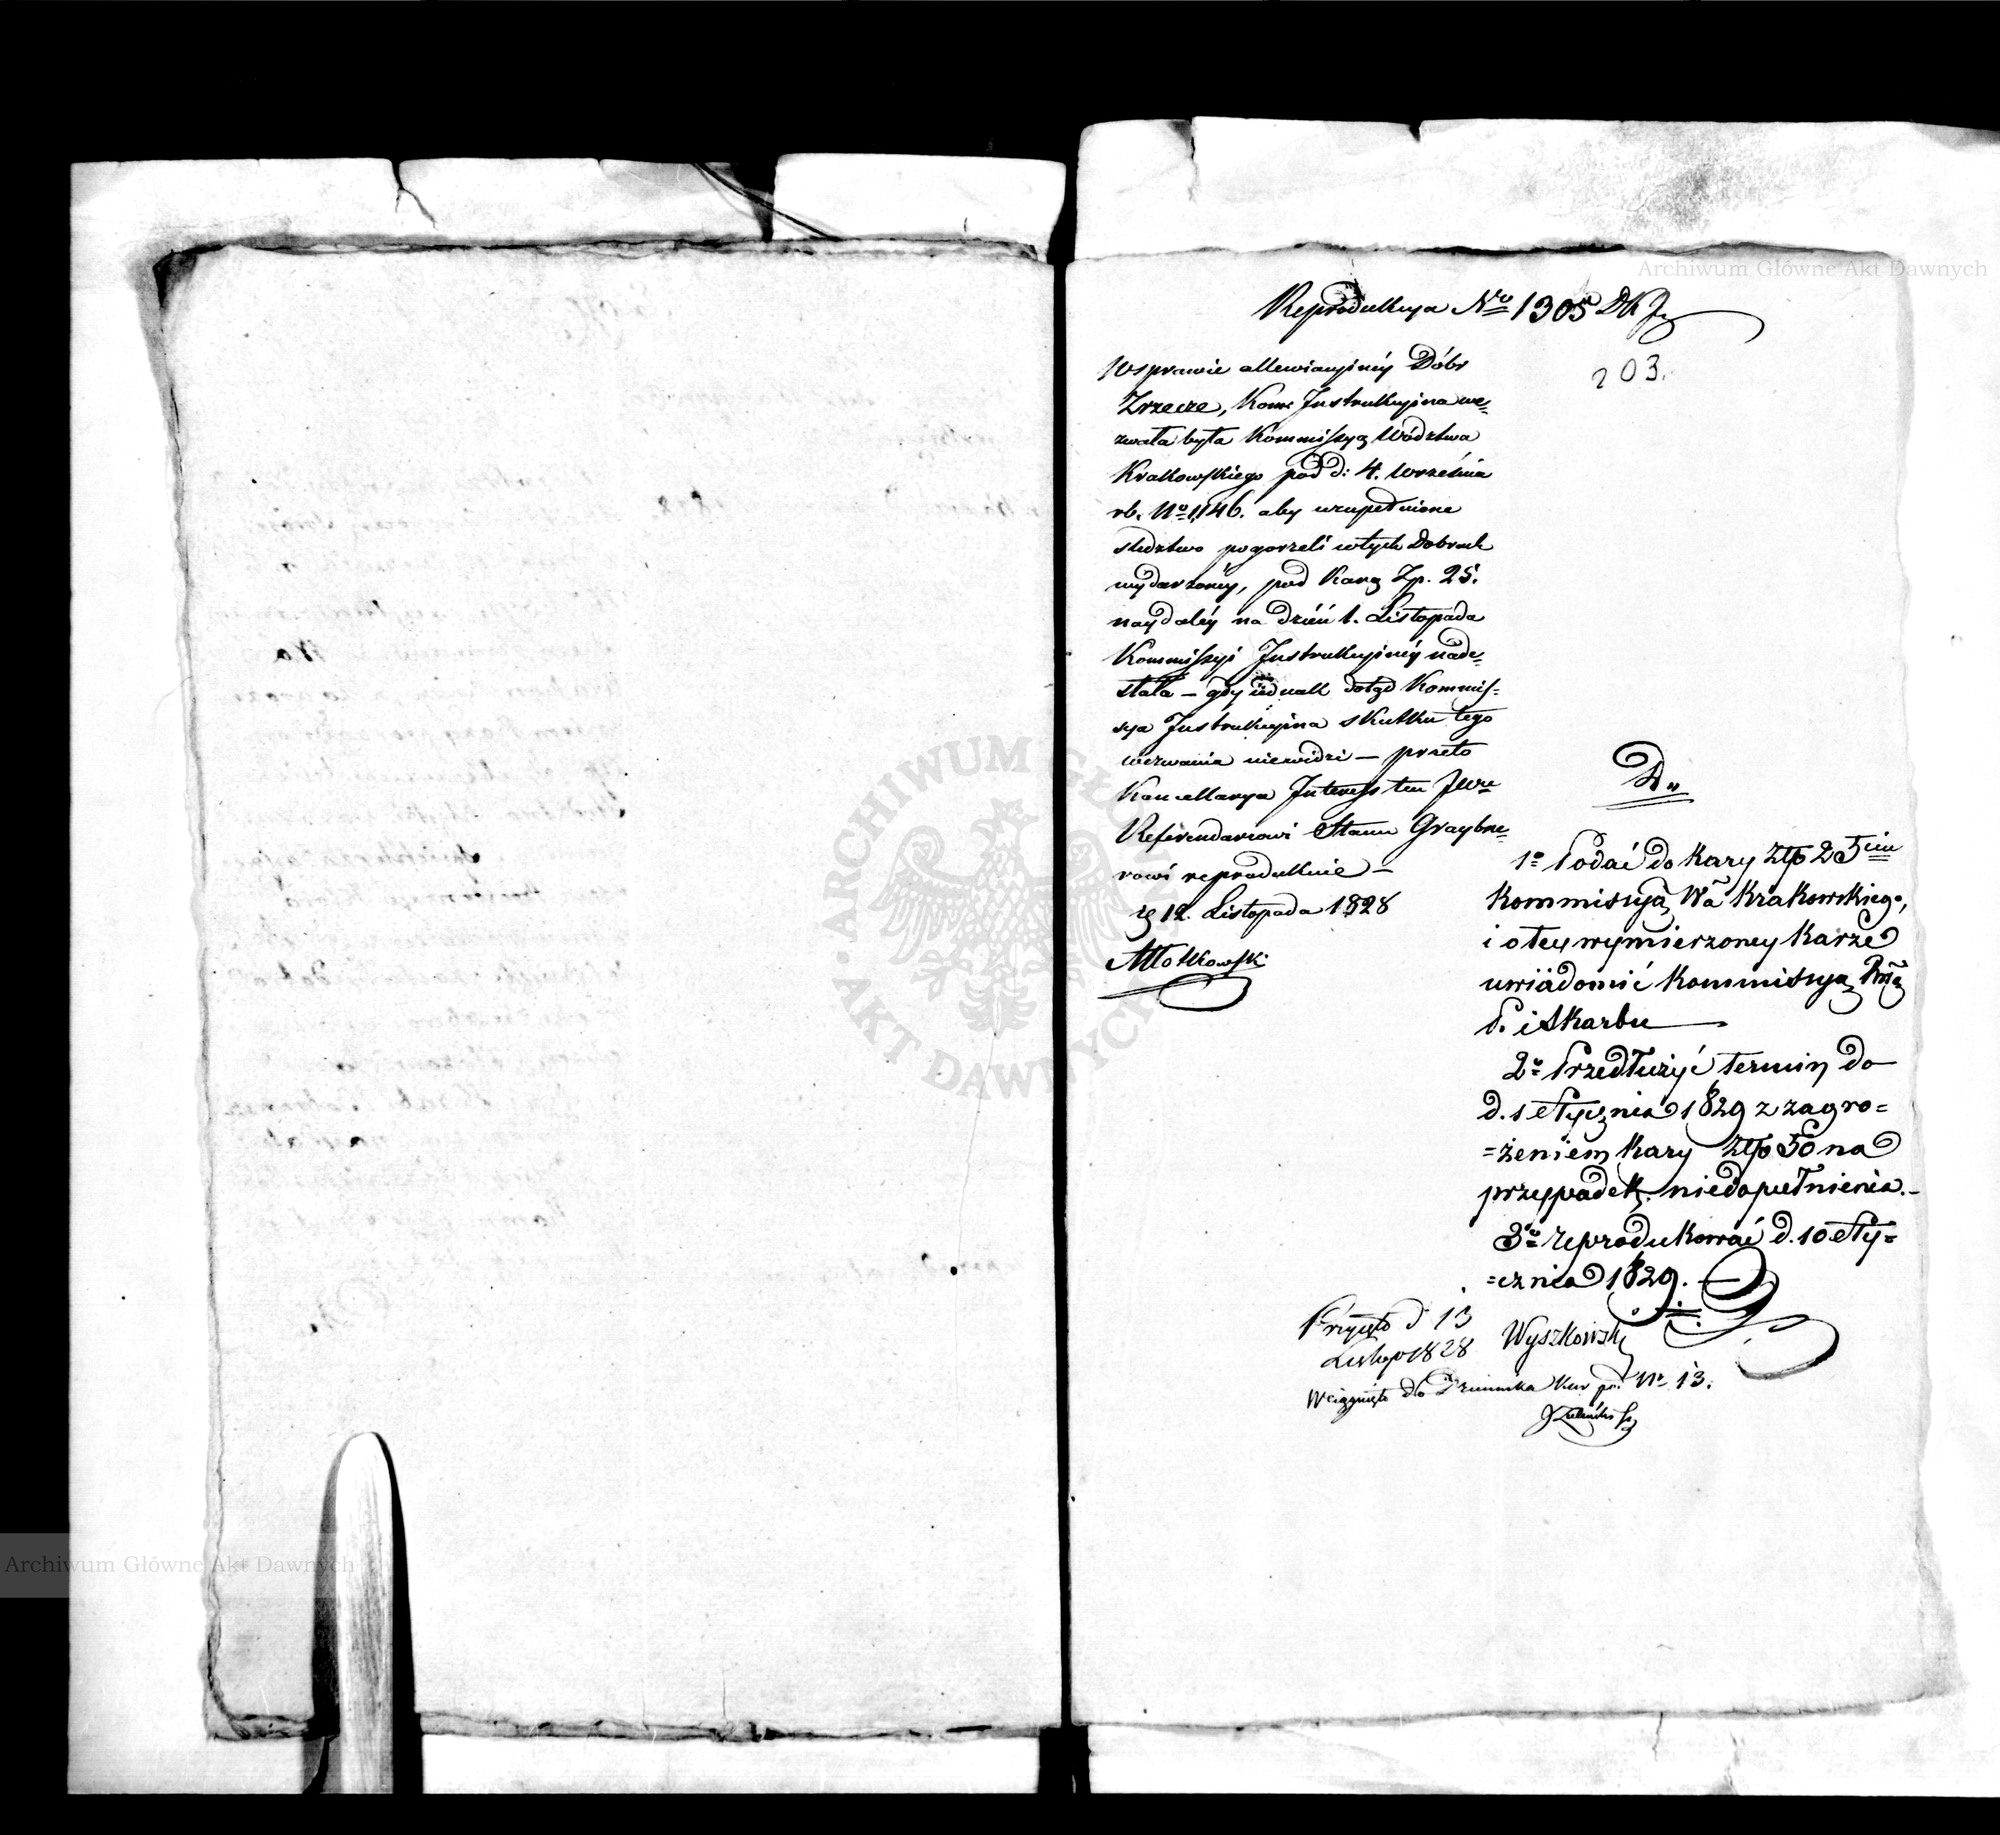 Archiwum Główne Akt Dawnych
Reprodukcya Nro 1305 DKJ
203.
W sprawie allewiacyjnéy Dóbr
Zrzecze, Kom: Instrukcyjna we=
zwała była Kommissyą Wództwa
Krakowskiego pod d: 4. Września
rb. No 1,146. aby uzupełnione
śledztwo pogorzeli w tych Dobrach
wydarzonéy, pod karą Zp. 25.
naydaléy na dzień 1. Listopada
Kommissyi Instrukcyjnéy nade=
słała – gdy iednak dotąd Kommis=
sya Instrukcyjna skutku tego
wezwania niewidzi – przeto
Kancellarya Interess ten JWu
Referendarzowi Stanu Graybne=
rowi reprodukuie –
12. Listopada 1828
Młotkowski
D,,
1o Podać do kary złp 25ciu
Kommissyą Wa Krakowskiego,
i o tey wymierzoney karze
uwiadomić Kommissyą Rzą
P. i Skarbu
2o Przedłużyć termin do
d. 1 Stycznia 1829 z zagro=
=żeniem kary złp 50 na
przypadek niedopełnienia. –
3o reprodukować d. 10 Sty=
=cznia 1829.
Wyszkowski
Przyięto d 13
Listop 1828
Wciągnięto do Dziennika Kar po. No 13.
ARCHIWUM GŁÓWNE AKT DAWNYCH
Archiwum Główne Akt Dawnych